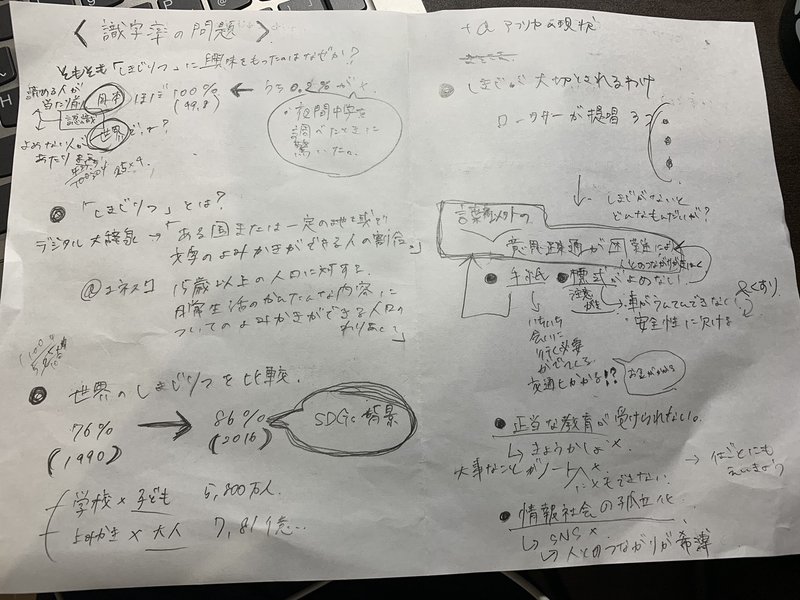 〈 識字率の問題 〉
そもそも「しきじりつ」に興味をもったのはなぜか?
読める人が
当たり前
日本 ほぼ100% ← うち0.2%が×
(99.8)
・夜間中学を
調べたときに
驚いた。
認識
世界では?
よめない人が
あたり
● 「しきじりつ」とは?
デジタル大辞泉→「ある国または一定の地域で
文字のよみかきができる人の割合。」
@ユネスコ 15歳以上の人口に対する、
日常生活のかんたんな内容に
ついてのよみかきができる人口の
わりあい」
● 世界のしきじりつを比較、
76% → 86%
(1990) (2016)
SDGs 背景
学校×子ども 5,800万人、
よみかき×大人 7,81億…
+α アフリカの現状
● しきじが大切とされるわけ
ローカサーが提唱 3つ
↓ しきじがないと
どんなもんだいが?
意思疎通が困難により
人とのつながりが
● 手紙 ● 標式がよめない
↓
いちいち
会いに
行く必要
がでてくる
交通ヒかかる!?
お金がかかる
注意
→車がうんてんできなく
・安全性に欠ける
くすり
● 正当な教育が受けられない。
↳ きょうかしょ×
大事なことがノート
にメモできない
→ しごとにも
えいきょう
● 情報社会の孤立化
↳ SNS ×
↳ 人とのつながりが希薄